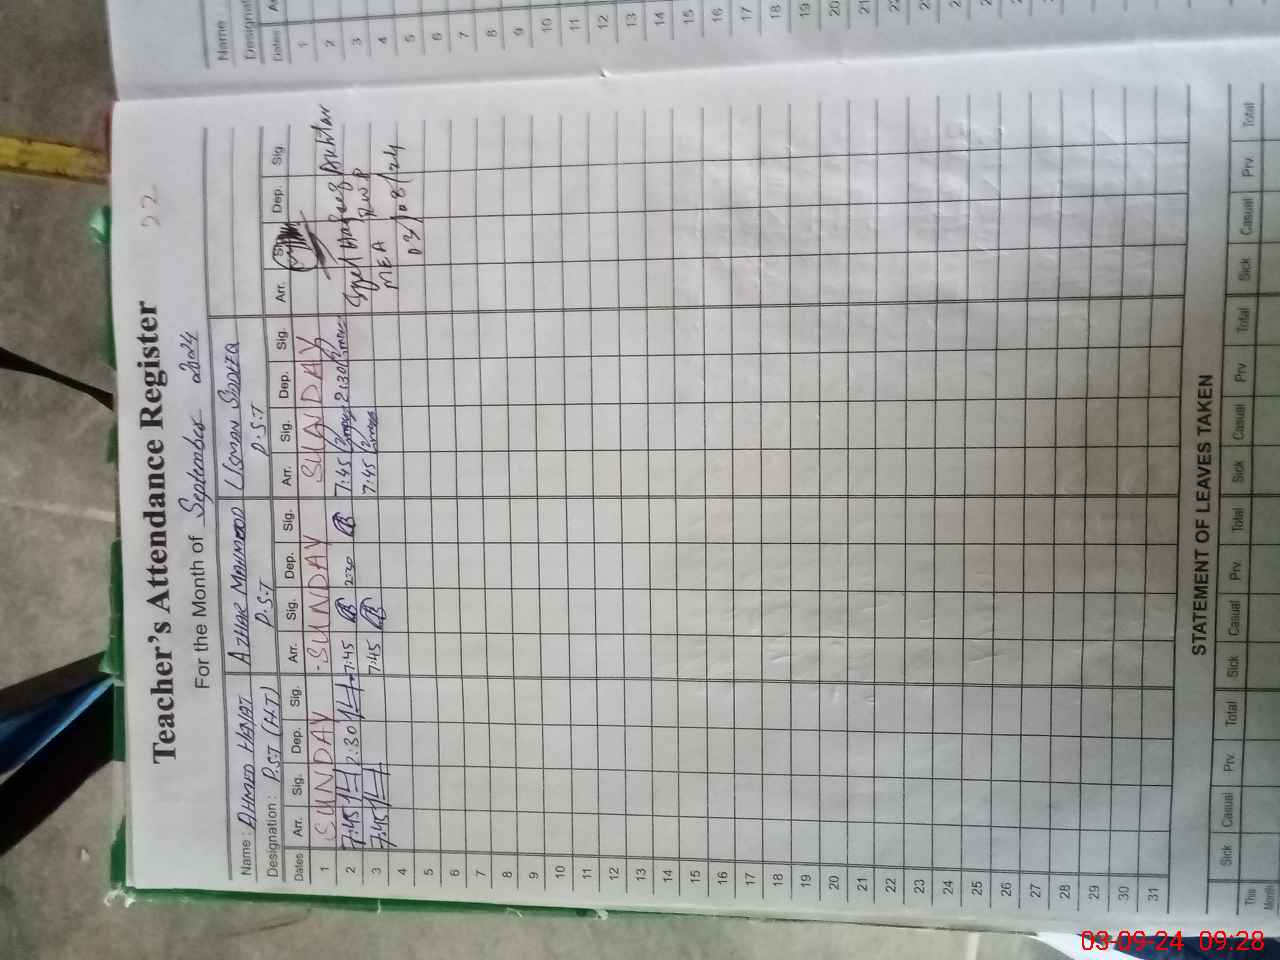 Teacher's Attendance Register 22
For the Month of September 2024
Name : AHMED HAYAT AZHAR MAHMOOD USMAN SIDDIQ
Designation : P.S.T (H.T) P.S.T P.S.T
Dates Arr. Sig. Dep. Sig. Arr. Sig. Dep. Sig. Arr. Sig. Dep. Sig. Arr. Dep. Sig
1 SUNDAY SUNDAY SUNDAY
2 7:45 2:30 7:45 2:30 7:45 2:30 Akhtar
3 7:45 7:45 7:45 MEA RWP
4 03/08/24
5
6
7
8
9
10
11
12
13
14
15
16
17
18
19
20
21
22
23
24
25
26
27
28
29
30
31
STATEMENT OF LEAVES TAKEN
Sick Casual Prv. Total Sick Casual Prv. Total Sick Casual Prv Total Sick Casual Prv. Total
This
Month
Name
Designat
Dates
1
2
3
4
5
6
7
8
9
10
11
12
13
14
15
16
17
18
19
20
21
03-09-24 09:28